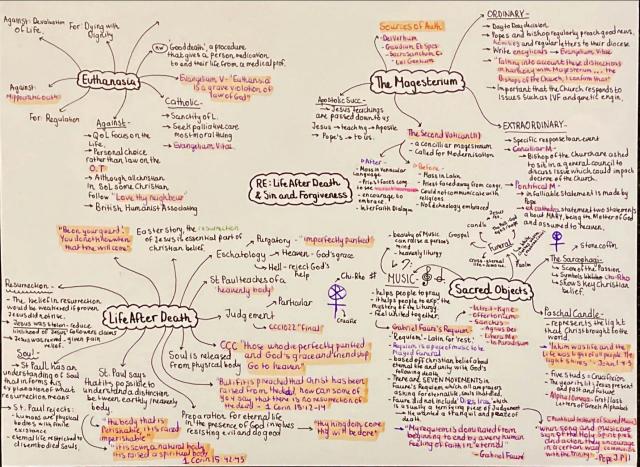 Against: Devaluation
of Life.
For: Dying with
Dignity
'Good death', a procedure
that gives a person medication
to end their life from a medical prof.
Euthanasia
Evangelium V- "Euthanasia
is a grave violation of
law of God"
Against:
Hippocratic Oath
For: Regulation
Catholic-
→ Sanctity of L.
→ Seek palliative care
most moral thing
→ Evangelium Vitae
Against-
→ QoL focus on the
Life,
→ Personal choice
rather than law on the
O.T
→ Although all christian
in SoL some Christian
Follow "Love thy neighbour"
→ British Humanist Associating
Sources of Auth:
- Dei Verbum
- Gaudium Et Spes
- Sacrosanctum C.
- Lei Gentium
The Magesterium
ORDINARY-
→ Day to Day decision
→ Popes and bishop regularly preach good news,
homilies and regular letters to their diocese
→ Write encyclicals → Evangelium Vitae
→ "Taking into account these distinctions
in harmony with Magisterium ... the
Bishops of the Church, I confirm that"
→ Important that the Church responds to
issues such as IVF and genetic engin.
Apostolic Succ-
→ Jesus teachings
are passed down to us
Jesus → teaching → Apostle
→ Pope's → to us.
The Second Vatican (II)
- a conciliar magesterium
- Called for Modernisation
→ After-
- Mass in Vernacular
Language
- Priest faces cong.
to see
- encourage, to
embrace
- Inter Faith Dialogue
→ Before-
- Mass in Latin
- Priest faced away from congr.
- Candid not communicate with
religions
- Not technology embraced
EXTRAORDINARY-
→ Specific response to an event
→ Conciliar M-
→ Bishop of the Church are asked
to sit in a general council to
discuss issue which could impact
doctrine of the Church.
→ Pontifical M-
→ infallible statement is made by
Pope
→ ex cathedra statement: two statements
about MARY, being the Mother of God
and assumed to heaven.
RE: Life After Death
& Sin and Forgiveness
"Been your guard!
You do not know when
that time will come"
Easter story, the resurrection
of Jesus is essential part of
christian belief.
Purgatory - "imperfectly purified"
Eschatology → Heaven - God's grace
→ Hell - reject God's
help
St Paul teaches of a
"heavenly body!"
Chi-Rho
Crucifix
Judgement
Particular
CCC 1022 "Final"
Life After Death
Resurrection-
→ The belief in resurrection
would be weakened if proven
Jesus did not die.
→ Jesus was given pain
relief.
Soul-
→ St Paul was an
understanding of Soul
and informs his
explanation of what
resurrection means
St Paul says
that it's possible to
understand a distinction
between earthly/heavenly
body.
→ St Paul rejects:
- humans are physical
bodies with finite
existence
- eternal life restricted to
disembodied Souls.
"the body that is
Perishable, it is raised
imperishable"
"it is sown a natural body
it is raised a spiritual body"
1 Corin 15:42-45
Soul is released
from physical body
CCC "those who die perfectly purified
and God's grace and friendship
Go to heaven"
"But if it is preached that Christ has been
raised from the dead how can some of
you say that there is no resurrection of
the dead" - 1 Corin 15:12-14
Preparation for eternal life
in the presence of God involves
resisting evil and do good
"thy kingdom come
thy will be done"
- beauty of Music
can raise a person's
mind
- heavenly liturgy
MUSIC
- helps people to pray
- it helps people to exp. the
mystery of the liturgy
- Feel united together
Sacred Objects
candle
Funeral
Psalm
stone coffin
The Sarcophagi-
→ Scene of the Passion
→ Symbols like the Chi-Rho
→ Show 3 key Christian
belief.
Paschal Candle-
→ represents the light
that Christ brought to the
world.
→ "In him was life and the
life was light of all people. The
light shines" - John 1:4-5
→ Five studs: Crucifixion
→ The year is lit, Jesus present,
past and future
→ Alpha/Omega- first/last
Letters of Greek Alphabet
Gabriel Faure's Requiem-
→ "Requiem"- Latin for "rest."
→ Requiem is a piece of music to be
played funeral
→ based off christian belief about
eternal life and unity with God's
following death.
→ There are SEVEN MOVEMENTS in
Faure's Requiem, which are all prayers
asking for eternal life, souls that died.
→ Faure did not include Dies Irae which
is usually a terrifying piece of Judgement
→ He wanted a tranquil and peace of
→ "My requiem is dominated from
beginning to end by a very human
feeling of faith in eternal"
- Gabriel Faure
- Introit + Kyrie
- Offertorium
- Sanctus
- Agnus Dei
- Libera Me
- In Paradisum
"when song and music are
sign of the Holy Spirit's pres.
and action, they encourage
in a certain way communion
with the Trinity"
- Pope JPII